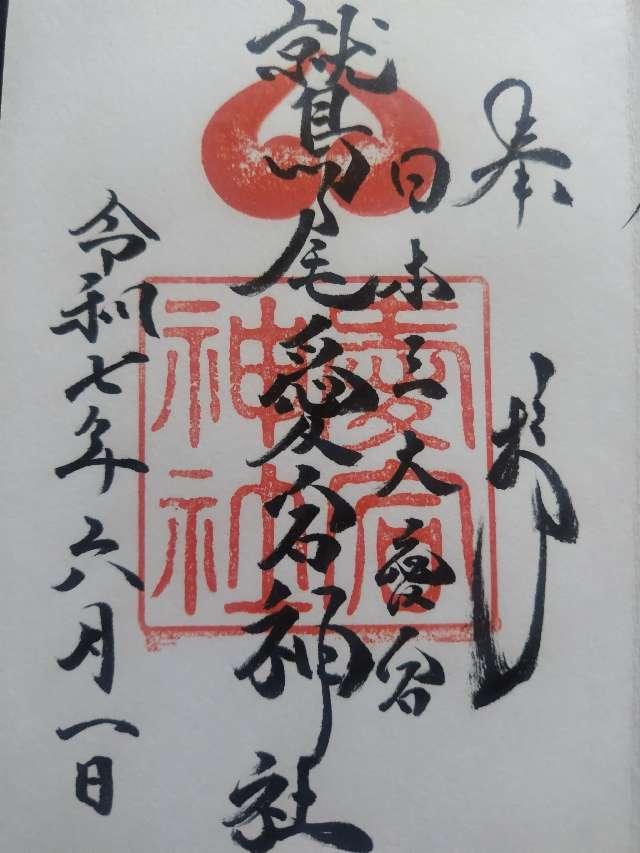 奉拝
日本三大愛宕
鷲尾愛宕神社
令和七年六月一日
愛宕
神社